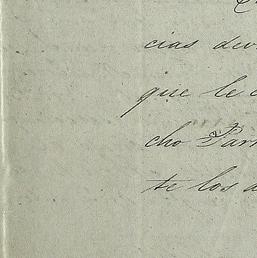 cias dev
que le c
cho Par
te los a